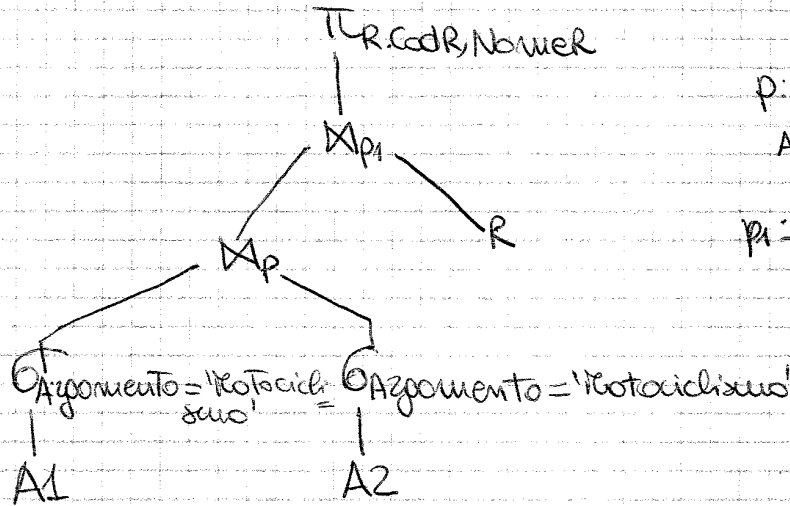 π R.CodR, NomeR
p:
⋈ p1
A
R
p1=
⋈ p
σ Argomento='Motocicli= σ Argomento='Motociclismo'
smo'
A1 A2